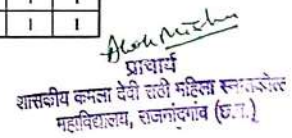 1 1
प्राचार्य
शासकीय कमला देवी राठी महिला स्नातकोत्तर
महाविद्यालय, राजनांदगांव (छ.ग.)